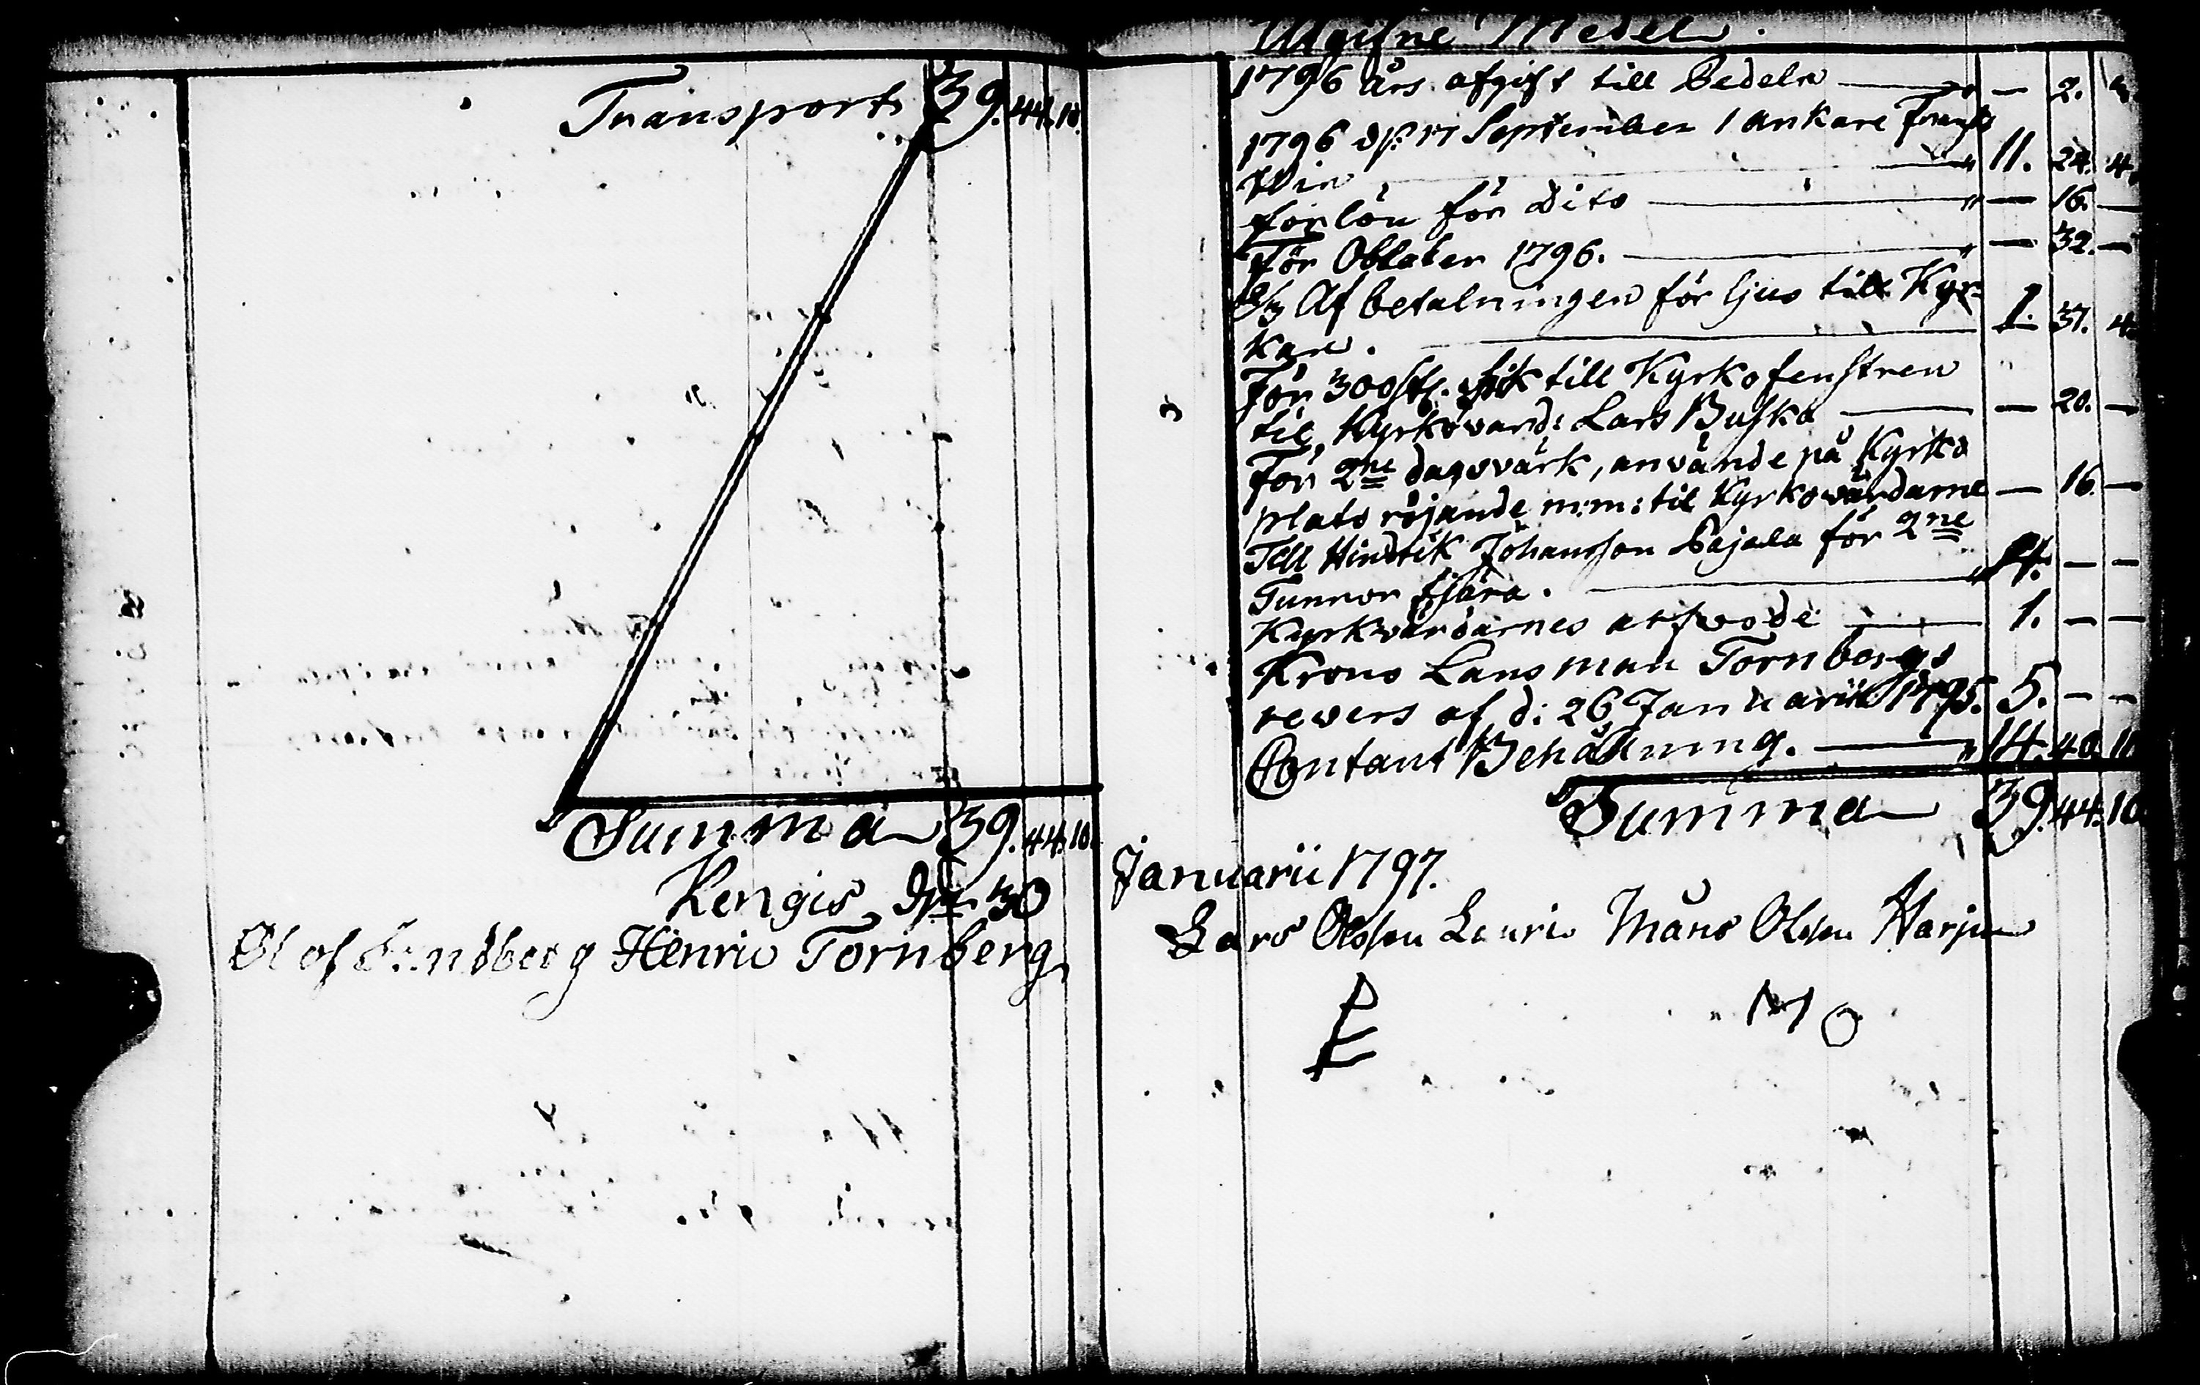 Transport 39. 44. 10.
Summa 39. 44. 10.
Kengis d. 30
Olof Sundberg Henric Tornberg
Utgifne Medel.
1796 års afgift till Bedeln — " — 2.
1796 d. 17 September 1 ankare fransk
Win — " 11. 24. 4
forlön för Dito — " — 16. —
För Oblater 1796. — " — 32. —
2/3 Af betalningen för ljus till Kyr-
kan. — 1. 37. 4
För 300 st. till Kyrkofenstren
til Kyrkovärd: Lars Busko — — 20. —
För 2ne dagsvärk, använde på Kyrko
plats röjande m:m: til Kyrkovärdarne — 16. —
Till Hindrik Johansson Pajala för 2ne
Tunnor tjära. — " 4. — —
Kyrkvärdarnes arfvode — 1. — —
Krono Lansman Tornbergs
revers af d: 26 Januarii 1795. 5. — —
Contant Behållning. — " 14. 40.
Summa 39. 44. 10
Januarii 1797.
Lars Olsson Lauri Måns Olsson Harju
M O